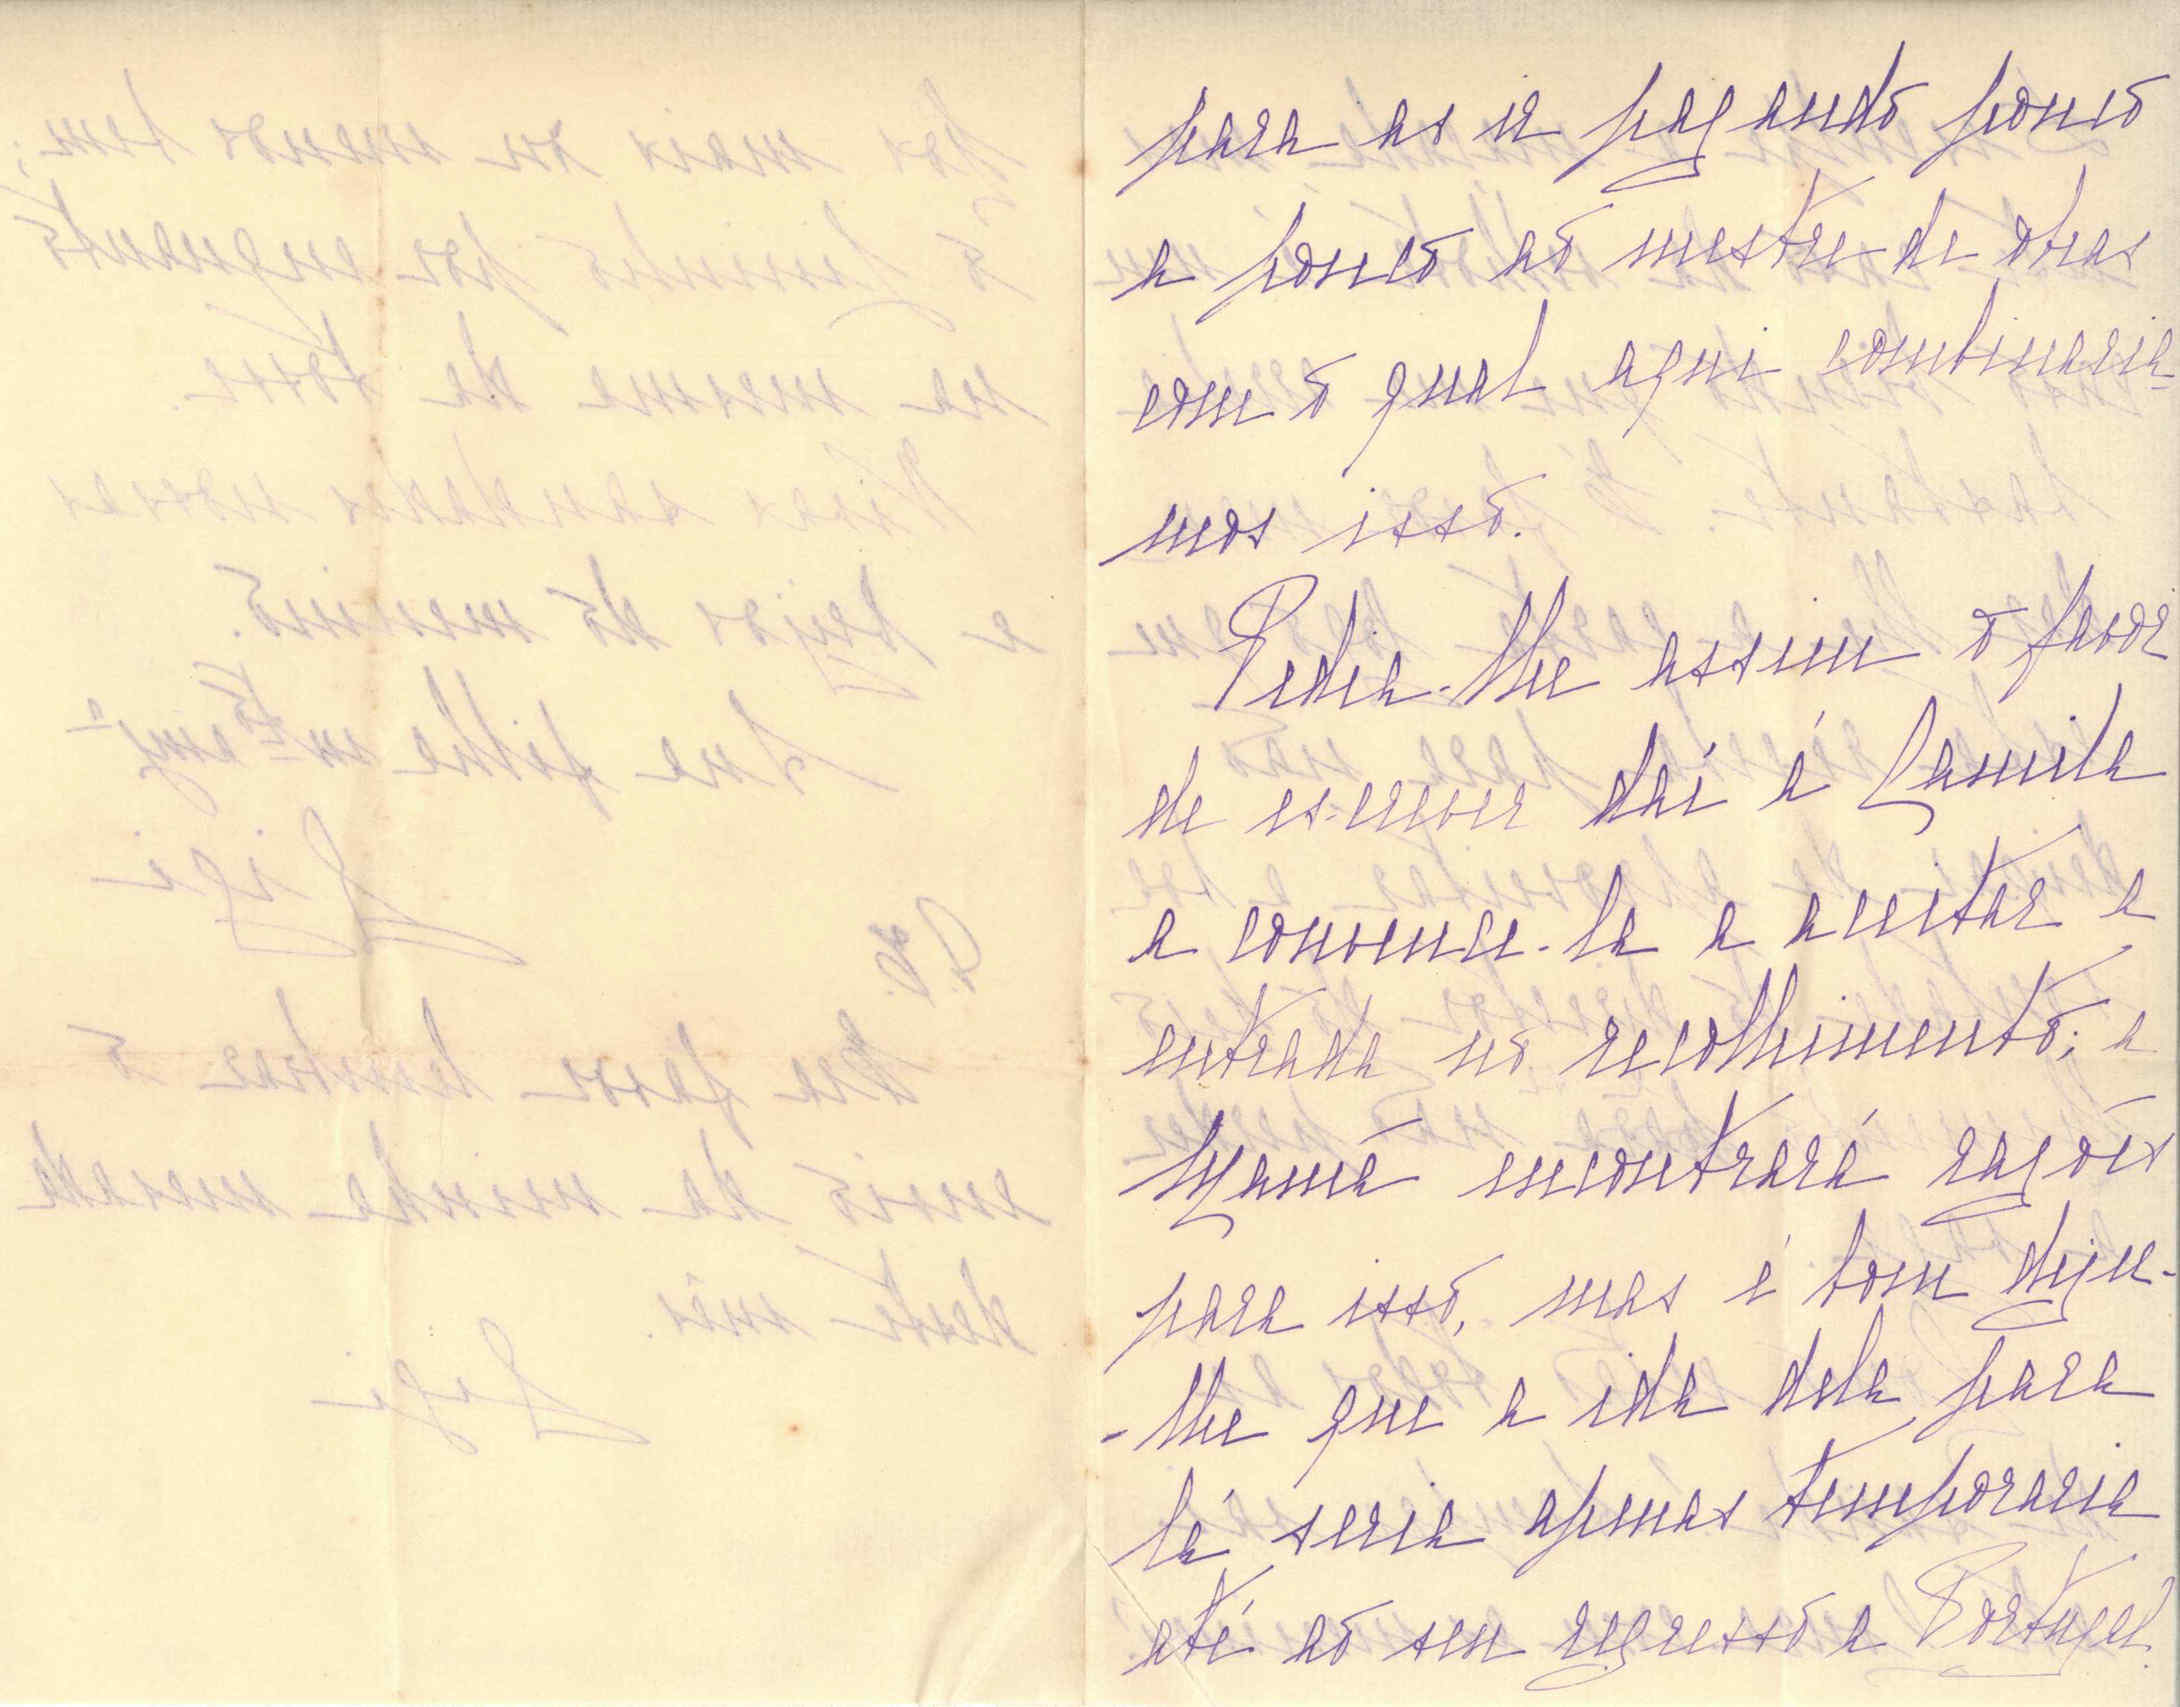 para as ir pagando pouco
a pouco ao mestre de obras
com o qual aqui combinaria-
mos isso.
Pedia-lhe assim o favor
de escrever daí á Camila
a convence-la a aceitar a
entrada no recolhimento; a
Mamã encontrará razões
para isso, mas é bom dizer-
-lhe que a ida dela para
lá seria apenas temporaria
até ao seu regresso a Portugal.